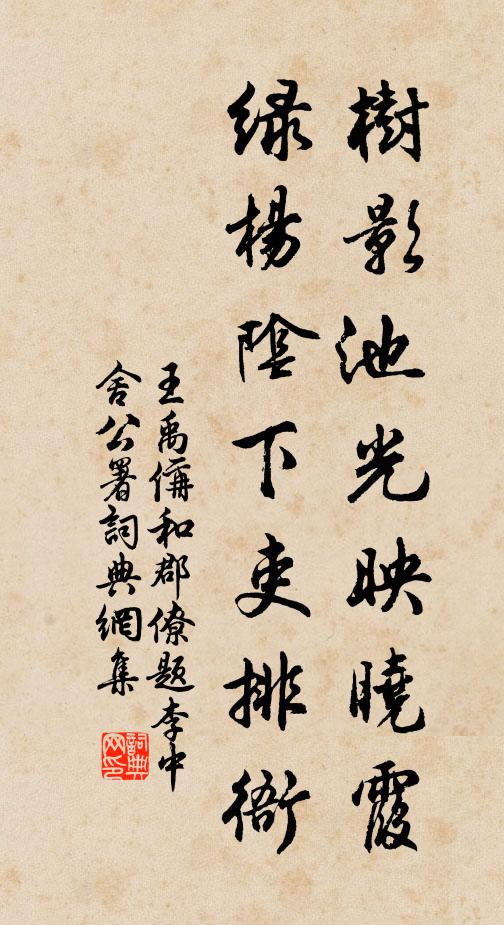 樹影池光映曉霞
綠楊陰下吏排衙
王禹偁和郡僚題李中
舍公署詞典網集
詞典网印